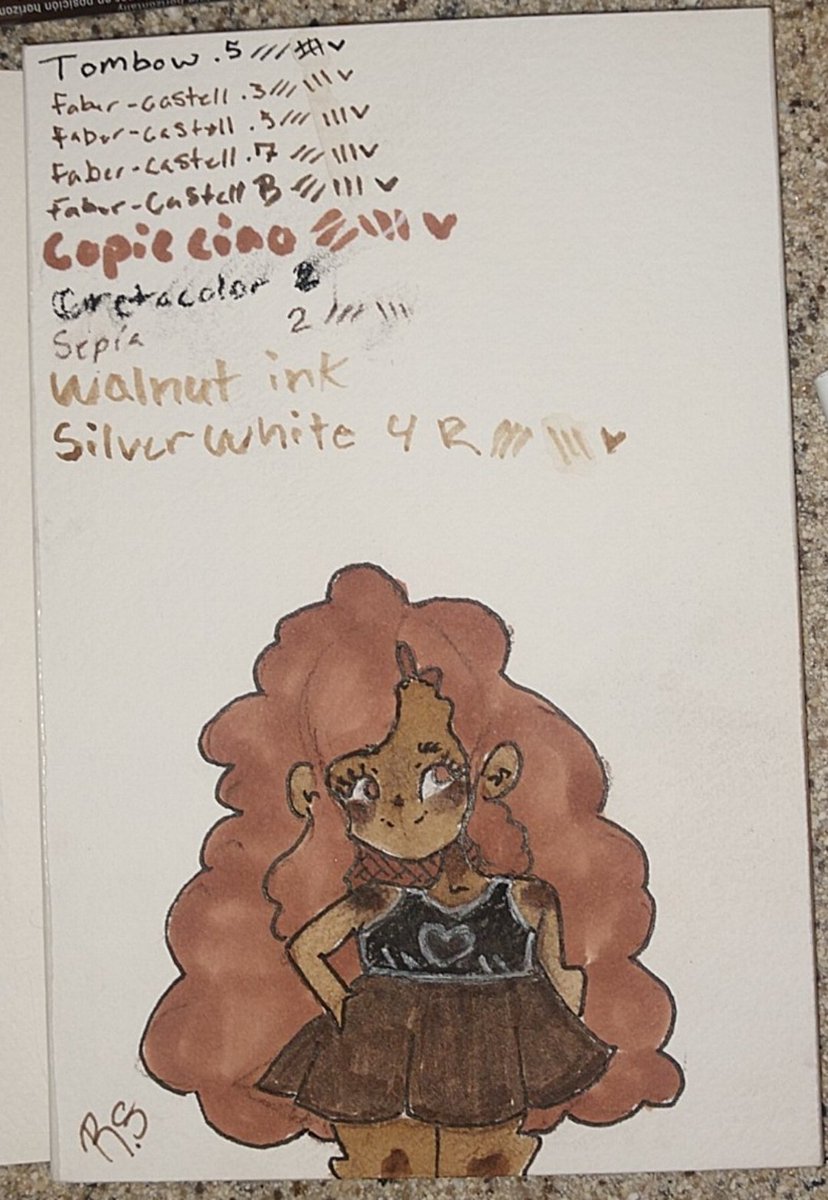 en posición horizon
Tombow .5
Faber-Castell .3
Faber-Castell .5
Faber-Castell .7
Faber-Castell B
Copic ciao
Cretacolor 2
Sepia 2
Walnut ink
Silver white 4 R
R.S